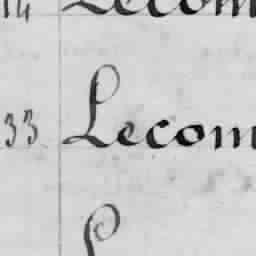 14 Lecom
33 Lecom
L